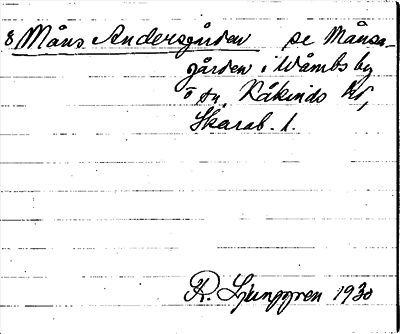 § Måns Andersgården se Månsa-
gården i Wåmbs by
o sn, Kåkinds hd,
Skarab. l.
R. Ljunggren 1930